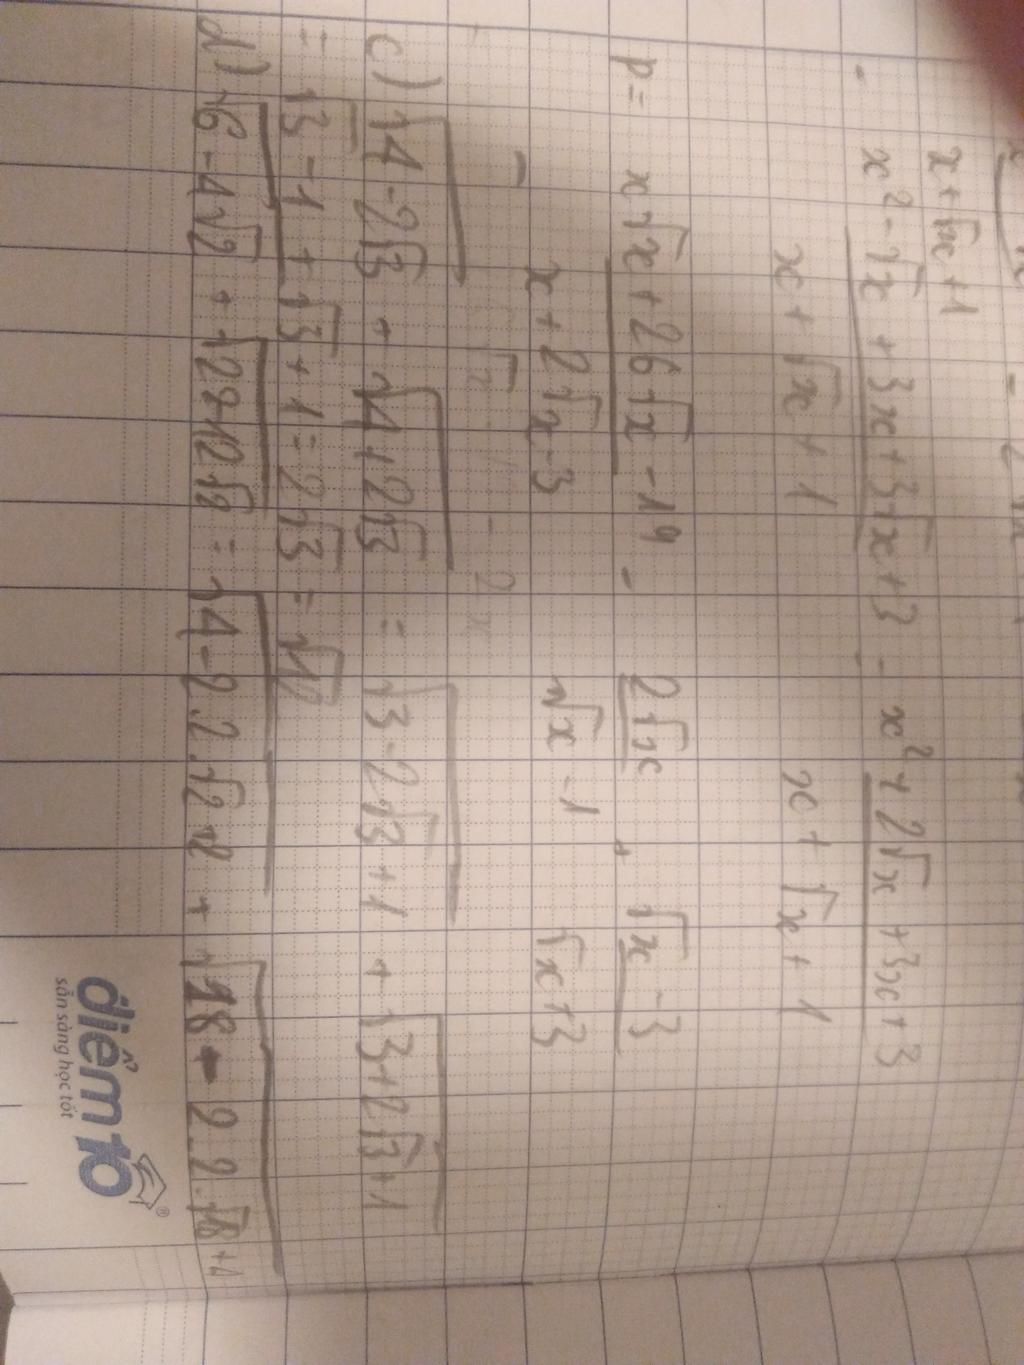 x + √x + 1
x² - √x + 3x + 3√x + 3 - x² + 2√x + 3x + 3
x + √x + 1 x + √x + 1
P = x√x + 26√x - 19 - 2√x + √x - 3
x + 2√x - 3 √x - 1 √x + 3
c) √4 - 2√3 + √4 + 2√3 = √3 - 2√3 + 1 + √3 + 2√3 + 1
= √3 - 1 + √3 + 1 = 2√3 = √12
d) √6 - 4√2 + √22 + 12√2 = √4 - 2.2.√2 + 2 + √18 - 2.2.√18 + 4
điểm10®
sẵn sàng học tốt